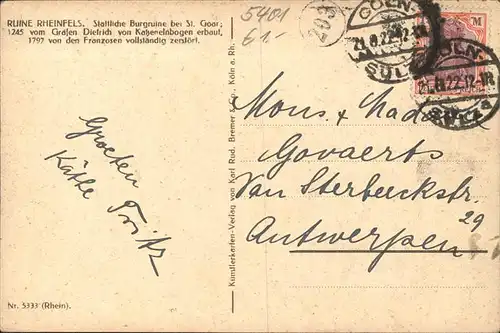 RUINE RHEINFELS. Stattliche Burgruine bei St. Goar;
1245 vom Grafen Dietrich von Katzenelnbogen erbaut,
1797 von den Franzosen vollständig zerstört.
5401
61.-
203
CÖLN-
21.8.22.12
SÜLZ
M
CÖLN-
.22.12-1N
Groeten
Käthe Fritz
Künstlerkarten-Verlag von Karl Rud. Bremer & Co., Köln a. Rh.
Mons. & Madame
Govaerts
Van Sterbeeckstr.
29
Antwerpen
Nr. 5333 (Rhein).